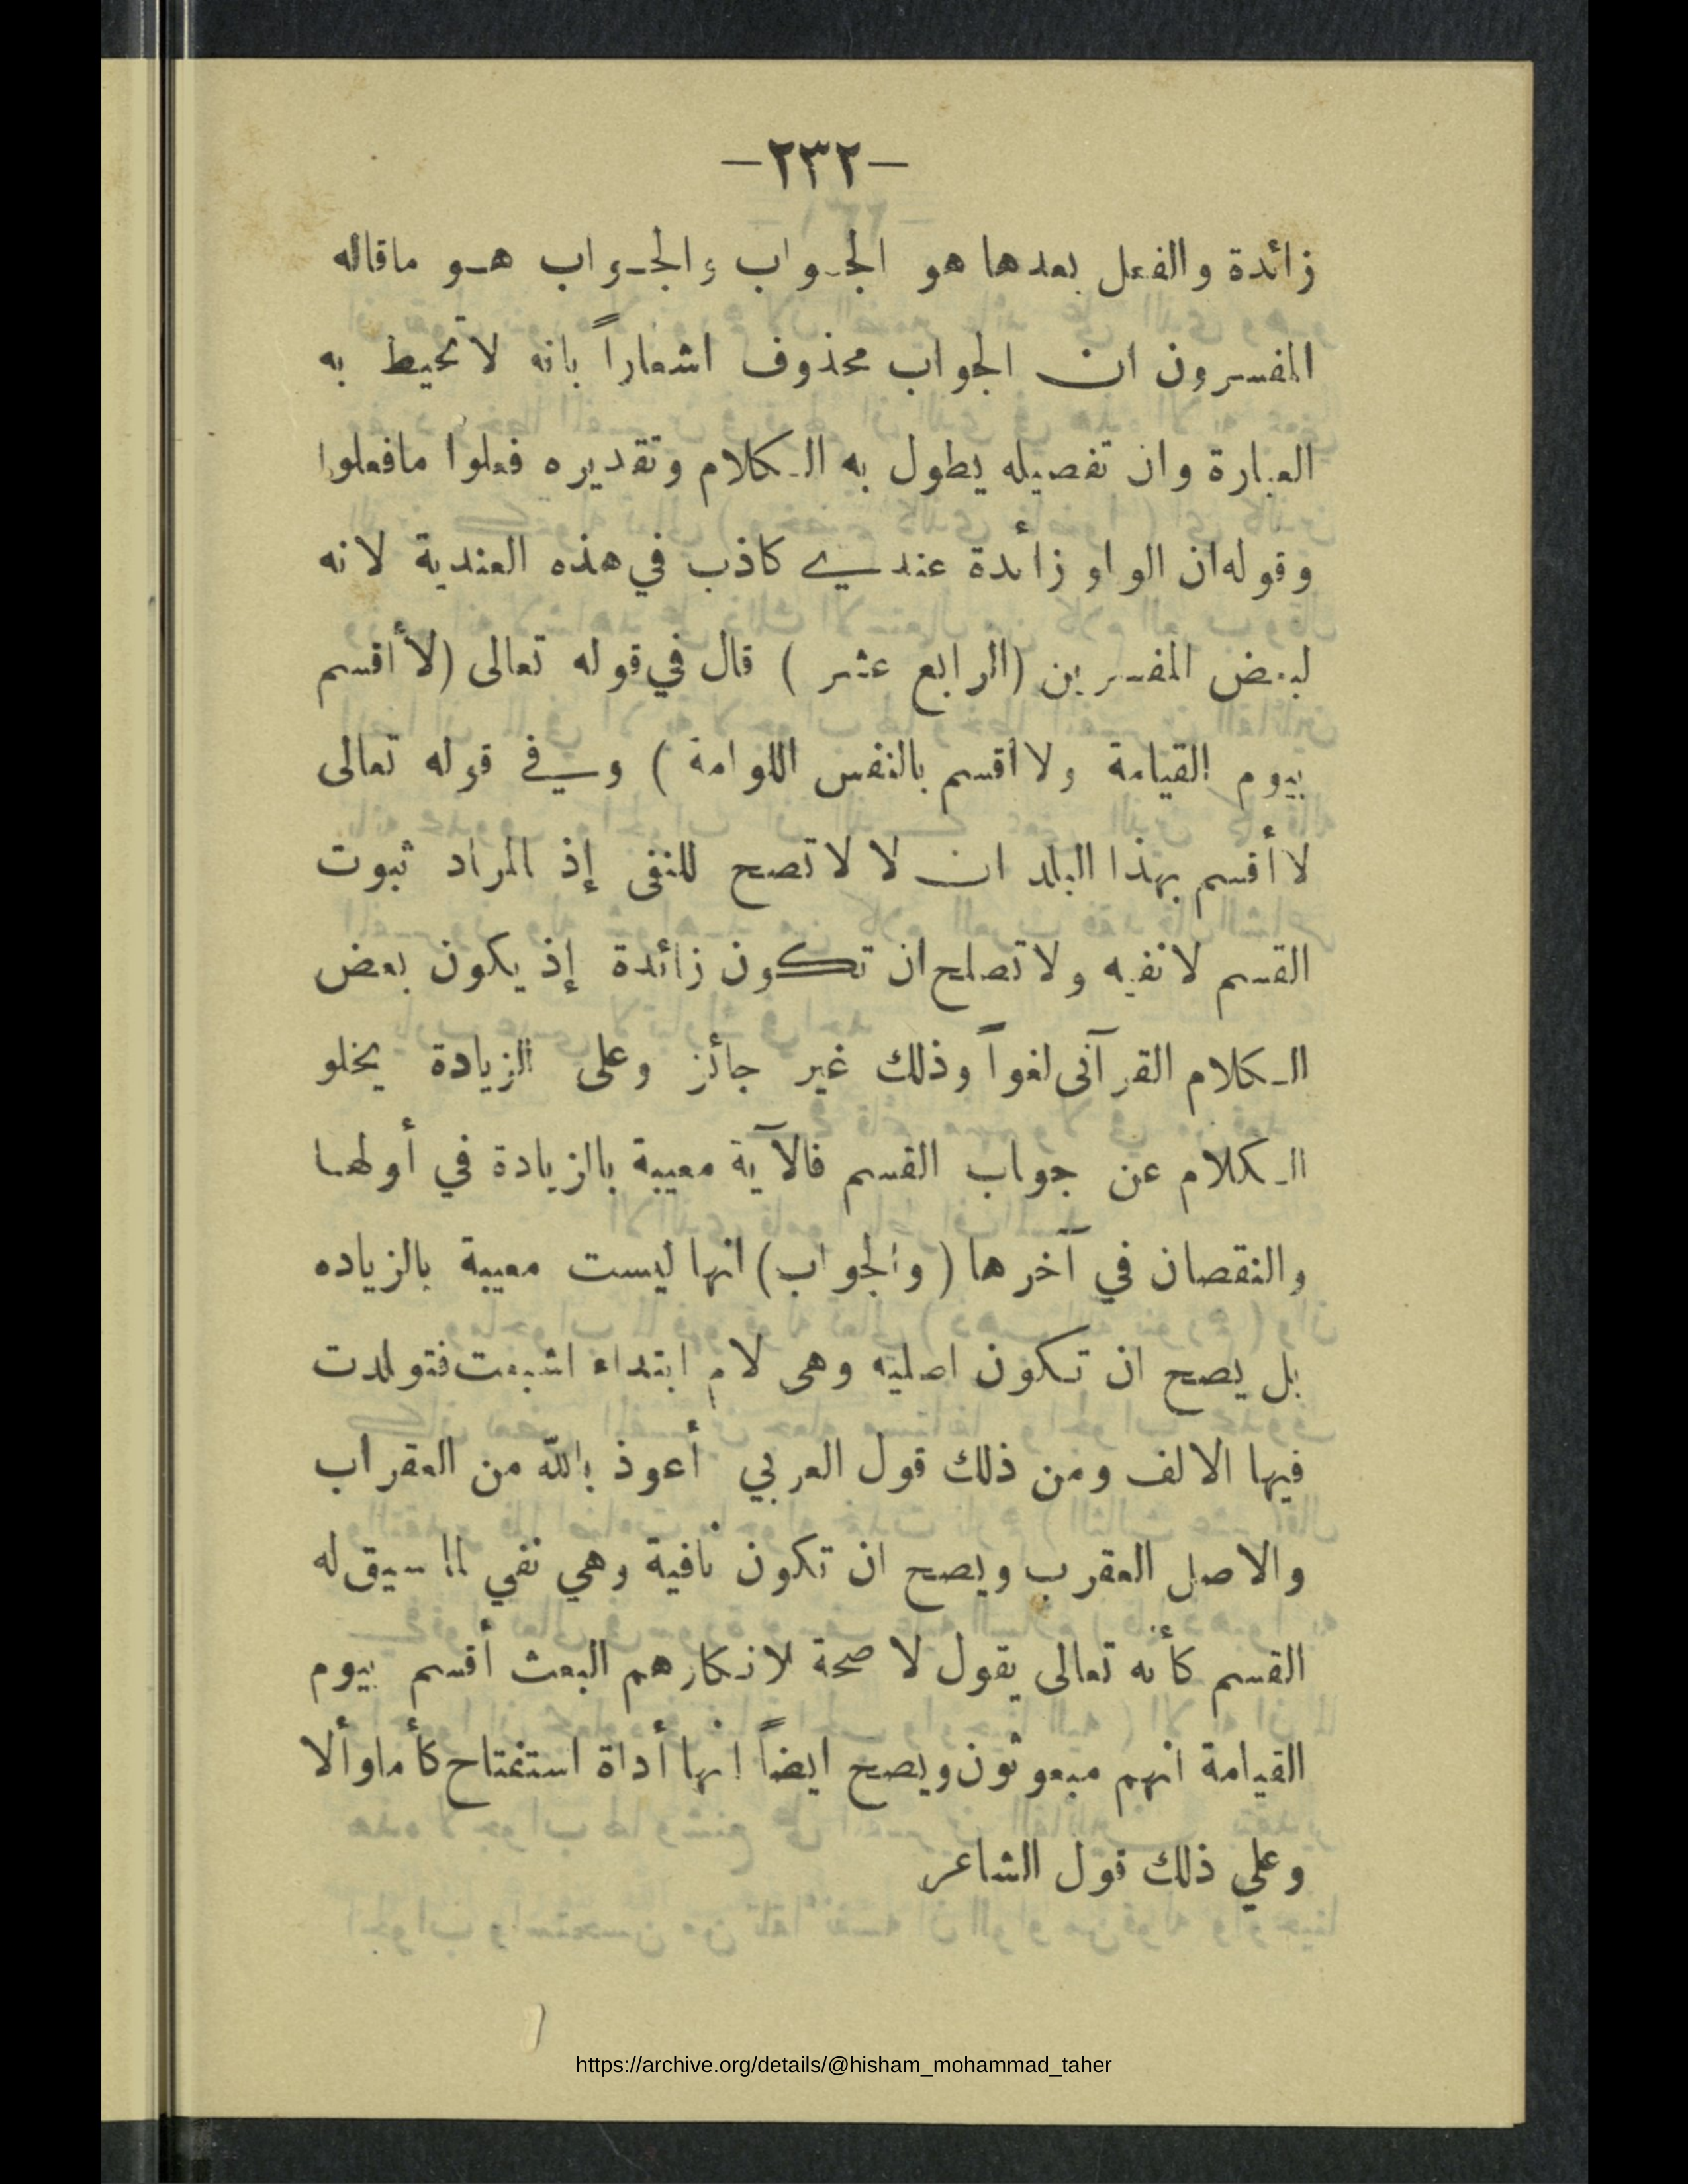 -٢٣٢-
زائدة والفعل بعدها هو الجواب والجواب هو ماقاله
المفسرون ان الجواب محذوف اشعاراً بانه لا تحيط به
العبارة وان تفصيله يطول به الكلام وتقديره فعلوا مافعلوا
وقوله ان الواو زائدة عندي كاذب في هذه العندية لانه
لبعض المفسرين (الرابع عشر ) قال في قوله تعالى (لا أقسم
بيوم القيامة ولا أقسم بالنفس اللوامة ) وفي قوله تعالى
لا أقسم بهذا البلد ان لا لا تصح للنفى إذ المراد ثبوت
القسم لا نفيه ولا تصلح ان تكون زائدة إذ يكون بعض
الكلام القرآنى لغواً وذلك غير جائز وعلى الزيادة يخلو
الكلام عن جواب القسم فالآية معيبة بالزيادة في أولها
والنقصان في آخرها ( والجواب ) انها ليست معيبة بالزياده
بل يصح ان تكون اصليه وهى لام ابتداء اشبعت فتولدت
فيها الالف ومن ذلك قول العربي أعوذ بالله من العقراب
والاصل العقرب ويصح ان تكون نافية وهي نفي لما سيق له
القسم كأنه تعالى يقول لا صحة لانكارهم البعث أقسم بيوم
القيامة انهم مبعوثون ويصح ايضاً انها أداة استفتاح كأما وألا
وعلي ذلك قول الشاعر
https://archive.org/details/@hisham_mohammad_taher